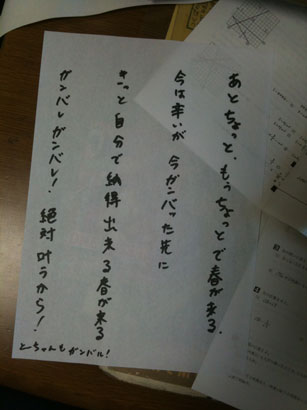 あとちょっと、もうちょっとで春が来る、
今は辛いが 今ガンバった先に
きっと自分で納得出来る春が来る
ガンバレガンバレ！ 絶対叶うから！
とーちゃんもガンバル！